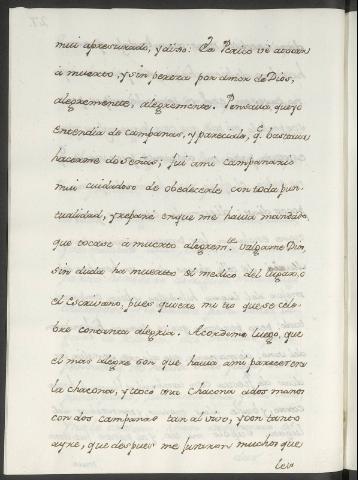 mui apresurado, y dixo: Ea Perico vè a tocar
à muerto, y sin pereza por amor de Dios,
alegremente, alegremente. Pensaua, que yo
entendia de campanas, y pareciale, q.e bastaua
hacerme de señas; fui a mi campanario
mui cuidadoso de obedecerle con toda pun-
tualidad, y reparè en que me hauia mandado
que tocase à muerto alegrem.te valgame Dios,
sin duda ha muerto el medico del lugar, o
el Escriuano, pues quiere mi tio que se cele-
bre con tanta alegria. Acordeme luego, que
el mas alegre son que hauia a mi parecer era
la chacona, y toco una chacona a dos manos
con dos campanas tan al viuo, y con tanto
ayre, que despues me juraron muchos que
les